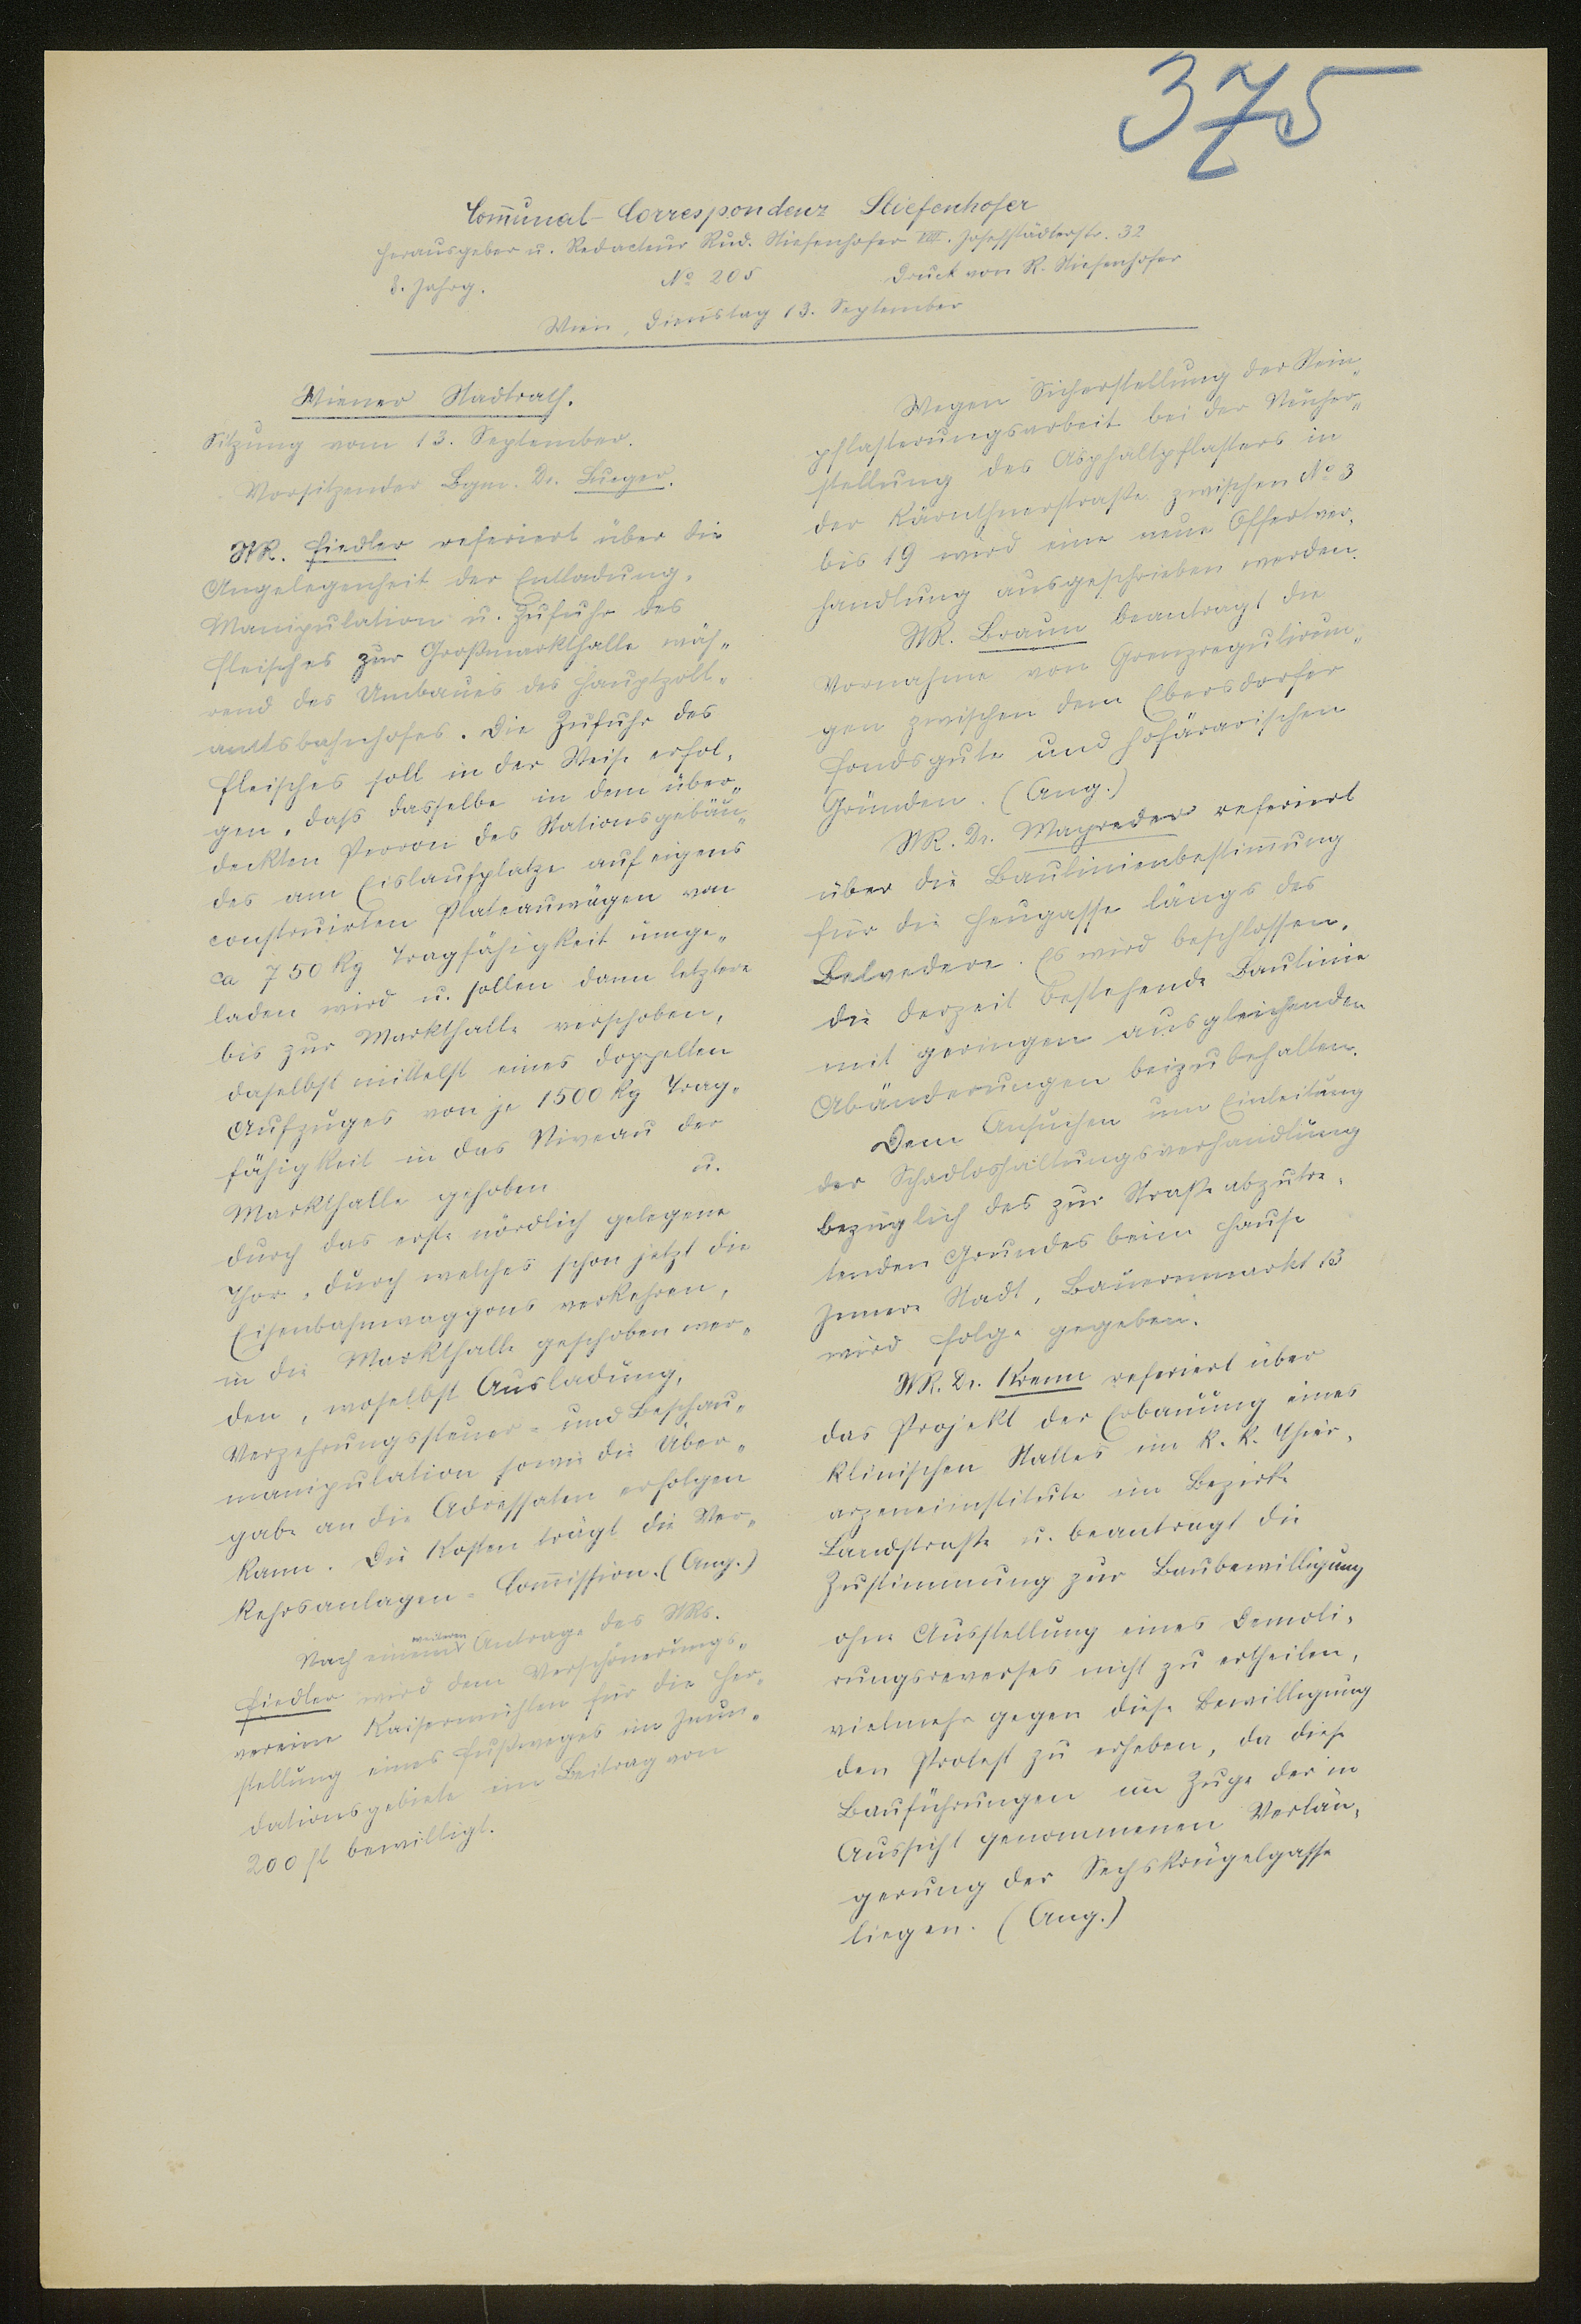 375
Comunal-Correspondenz Stiefenhofer
Herausgeber u. Redacteur Rud. Stiefenhofer VIII. Josefstädterstr. 32
8. Jahrg. No 205 Druck von R. Stiefenhofer
Wien, Dienstag 13. September
Wiener Stadtrath.
Sitzung vom 13. September.
Vorsitzender Bgm. Dr. Lueger.
StR. Fiedler referiert über die
Angelegenheit der Entladung,
Manipulation u. Zufuhr des
Fleisches zur Großmarkthalle wäh-
rend des Umbaues des Hauptzoll-
amtsbahnhofes. Die Zufuhr des
Fleisches soll in der Weise erfol-
gen, daß dasselbe in dem über-
deckten Perron des Stationsgebäu-
des am Eislaufplatze auf eigens
construirten Plateauwägen von
ca 750 kg Tragfähigkeit umge-
laden wird u. sollen dann letztere
bis zur Markthalle verschoben,
daselbst mittelst eines doppelten
Aufzuges von je 1500 kg Trag-
fähigkeit in das Niveau der
Markthalle gehoben u.
durch das erste nördlich gelegene
Thor, durch welches schon jetzt die
Eisenbahnwaggons verkehren,
in die Markthalle geschoben wer-
den, woselbst Ausladung,
Verzehrungssteuer- und Beschau-
manipulation sowie die Über-
gabe an die Adressaten erfolgen
kann. Die Kosten trägt die Ver-
kehrsanlagen-Comission. (Ang.)
Nach einem weiteren Antrage des StRs.
Fiedler wird dem Verschönerungs-
vereine Kaisermühlen für die Her-
stellung eines Fußweges im Inun-
dationsgebiete ein Beitrag von
200 fl bewilligt.
Wegen Sicherstellung der Stein-
pflasterungsarbeit bei der Neuher-
stellung des Asphaltpflasters in
der Kärnthnerstraße zwischen No 3
bis 19 wird eine neue Offertver-
handlung ausgeschrieben werden.
StR. Braun beantragt die
Vornahme von Grenzregulirun-
gen zwischen dem Ebersdorfer
Fondsgute und hofärarischen
Gründen. (Ang.)
StR. Dr. Mayreder referiert
über die Baulinienbestimung
für die Heugasse längs des
Belvedere. Es wird beschlossen,
die derzeit bestehende Baulinie
mit geringen ausgleichenden
Abänderungen beizubehalten.
Dem Ansuchen um Einleitung
der Schadloshaltungsverhandlung
bezüglich des zur Straße abzutre-
tenden Grundes beim Hause
Innere Stadt, Bauernmarkt 13
wird Folge gegeben.
StR. Dr. Krenn referiert über
das Projekt der Erbauung eines
klinischen Stalles im k. k. Thier-
arzeneiinstitute im Bezirke
Landstraße u. beantragt die
Zustimmung zur Baubewilligung
ohne Ausstellung eines Demoli-
rungsreverses nicht zu ertheilen,
vielmehr gegen diese Bewilligung
den Protest zu erheben, da diese
Bauführungen im Zuge der in
Aussicht genommenen Verlän-
gerung der Sechskrügelgasse
liegen. (Ang.)